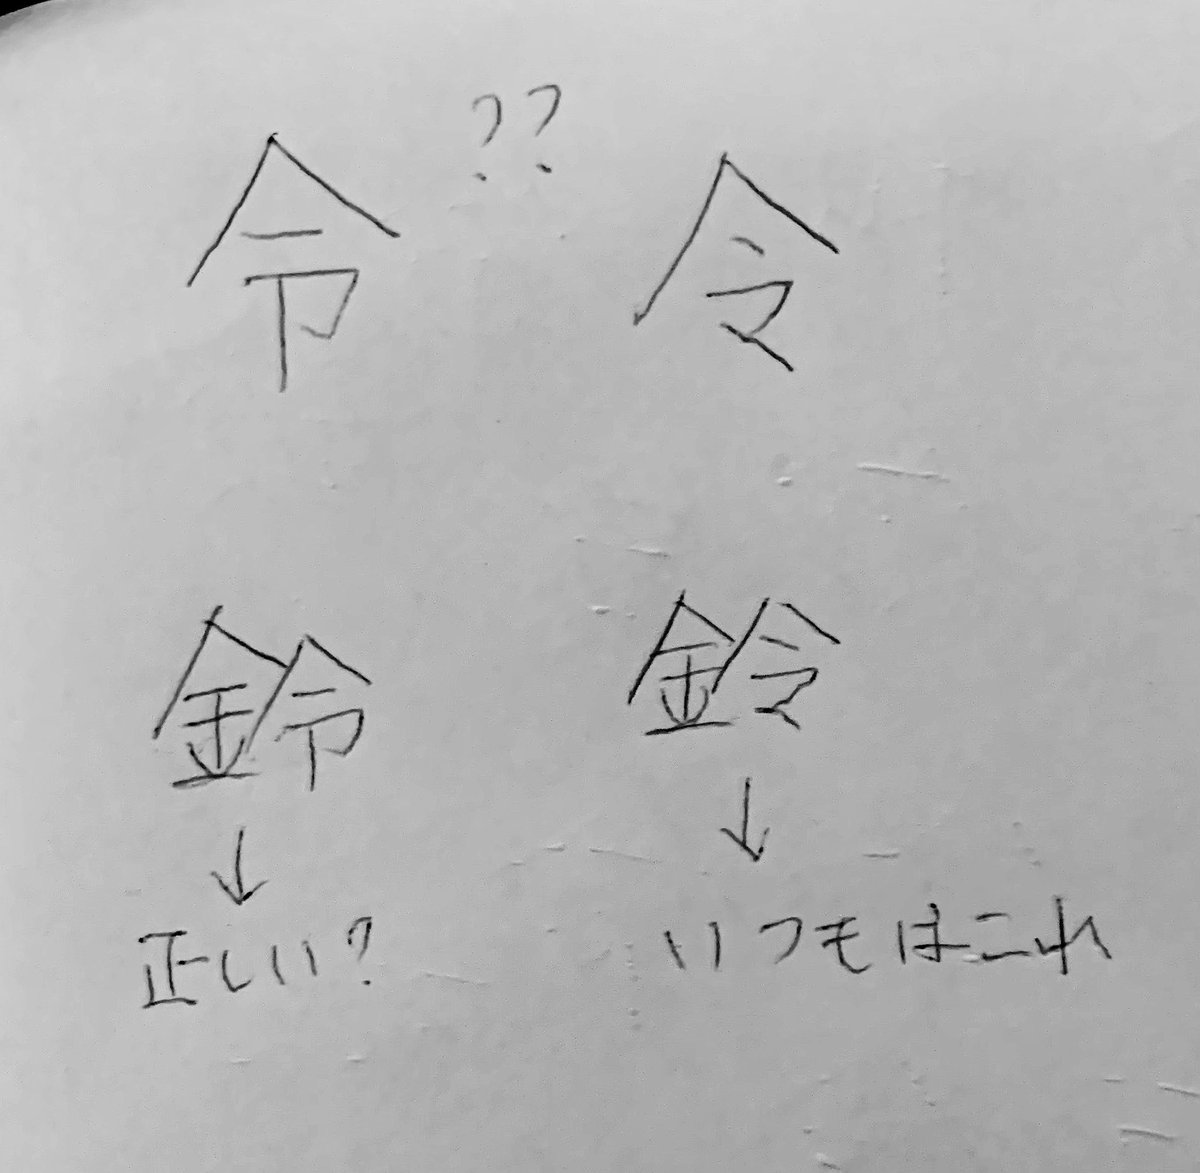 ??
令 令
鈴 鈴
↓ ↓
正しい? いつもはこれ